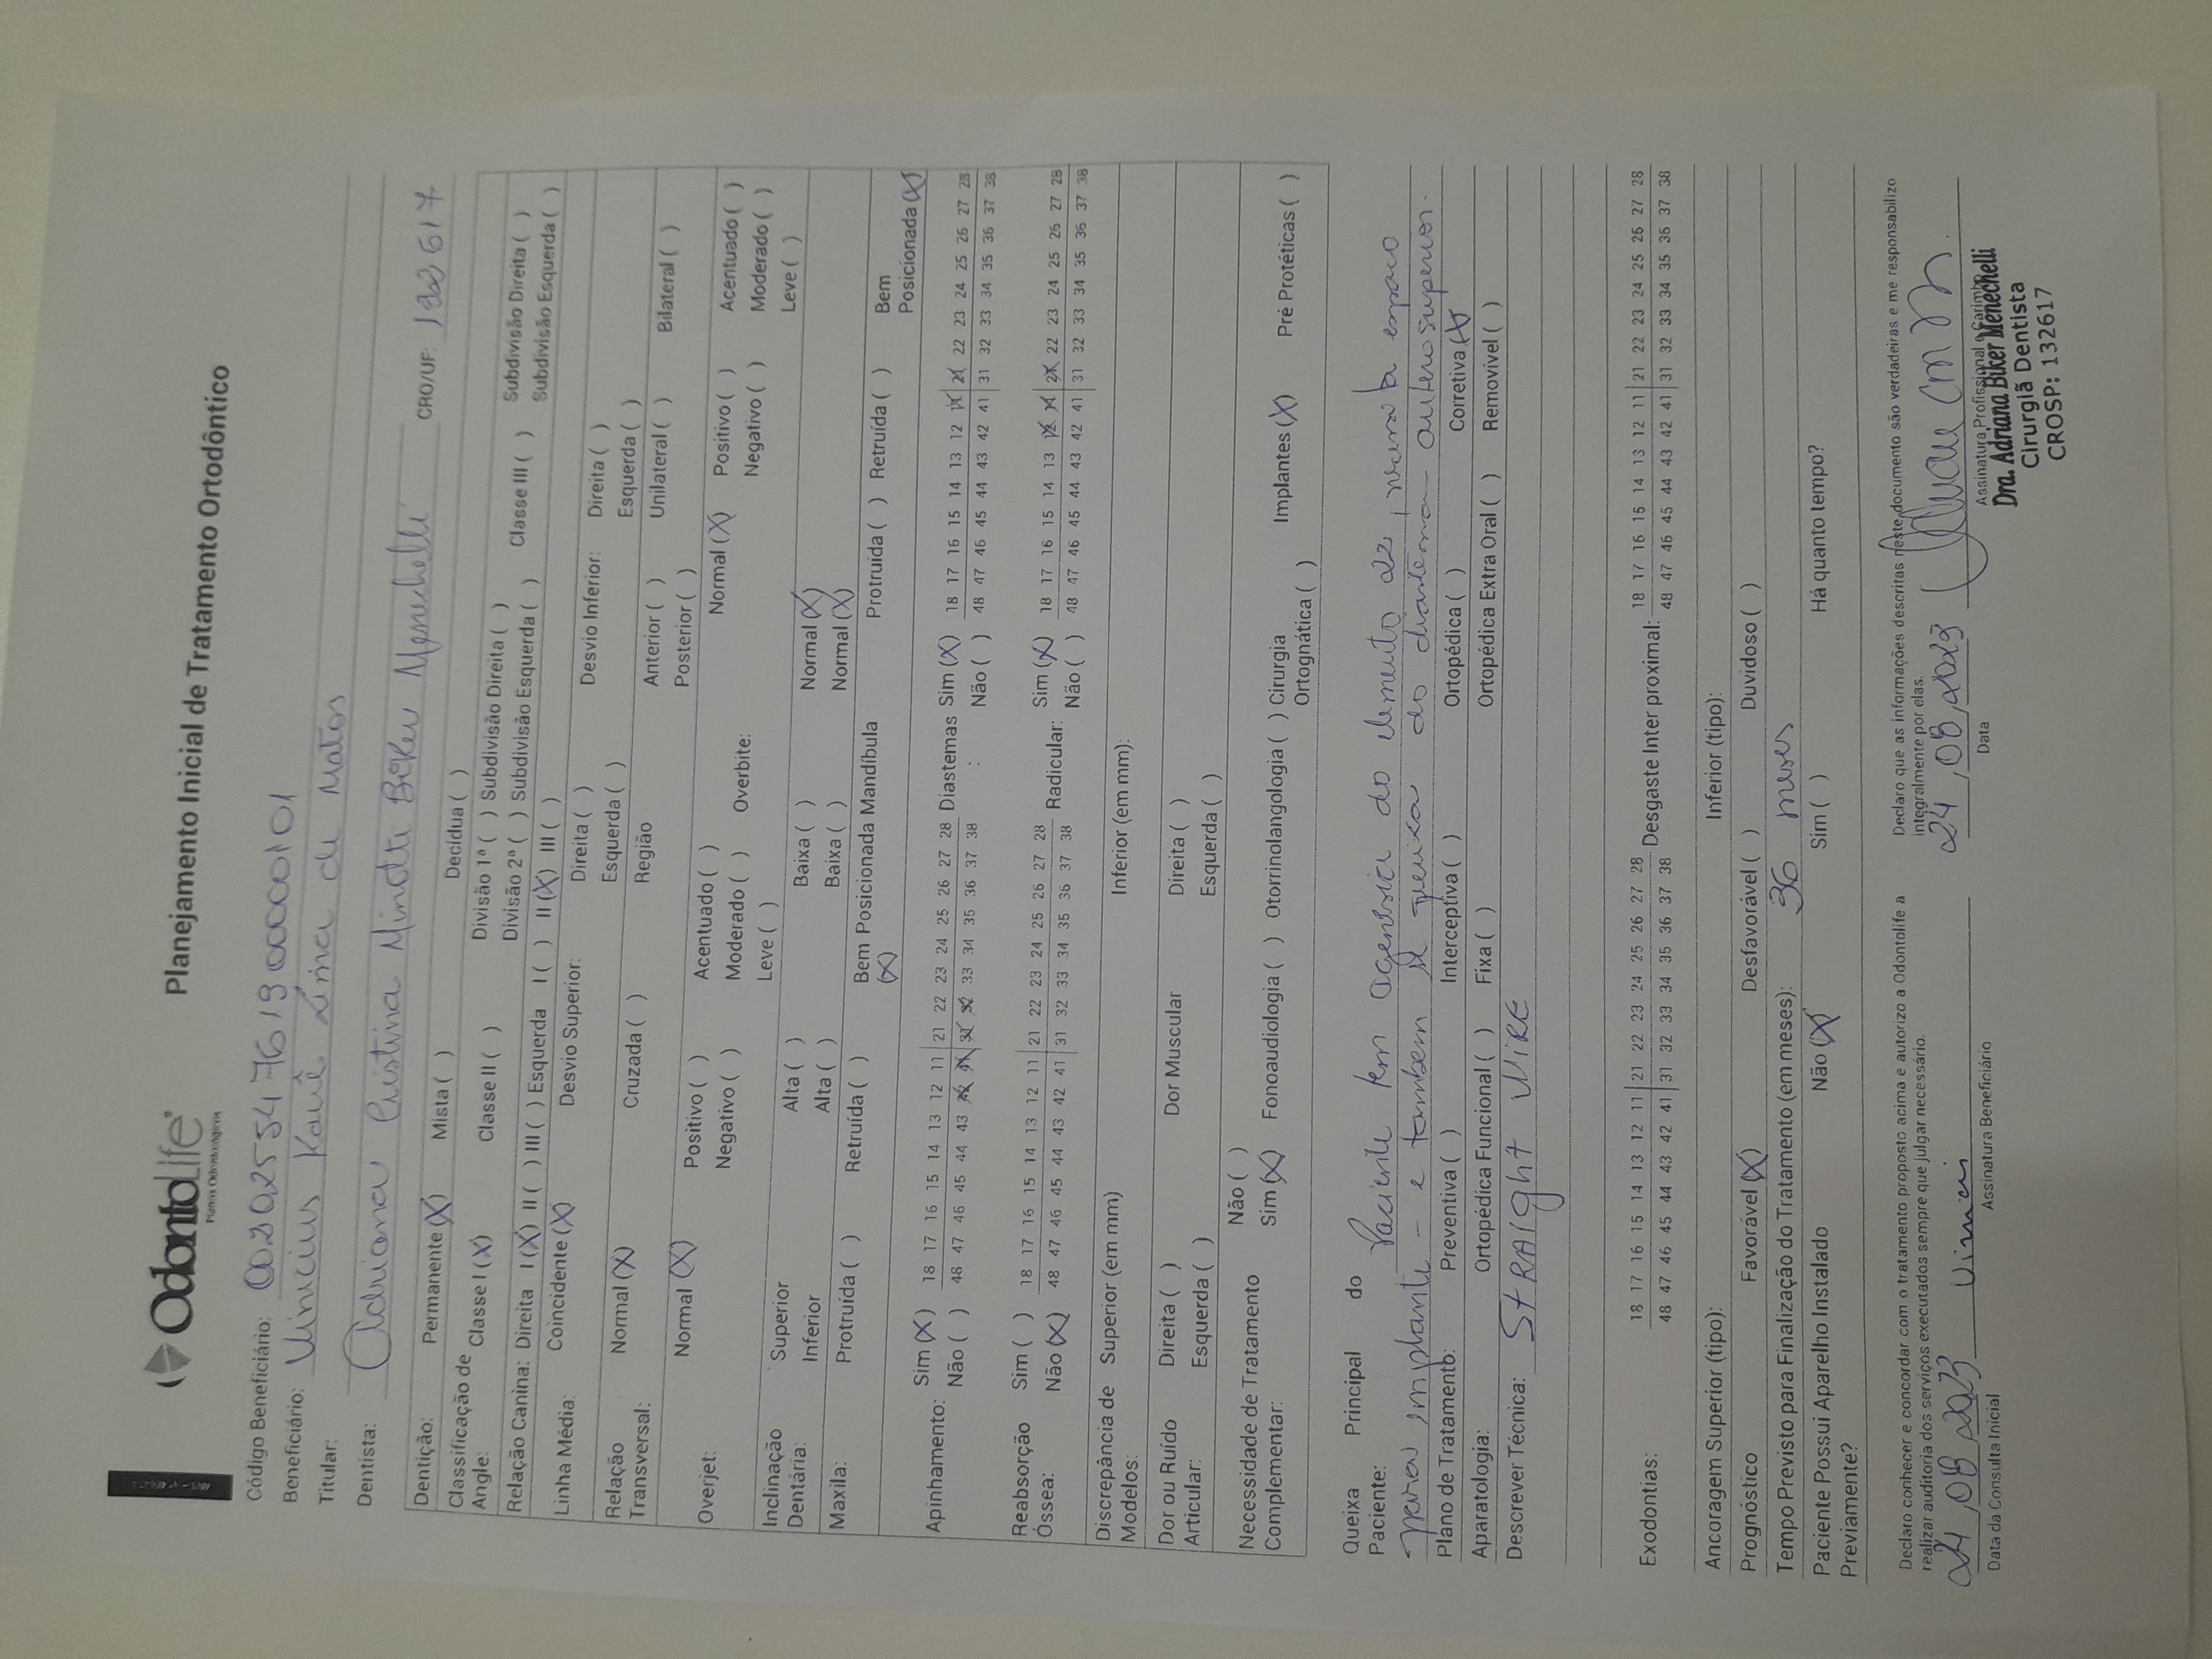 OdontoLife
Planos Odontológicos
Planejamento Inicial de Tratamento Ortodôntico
Código Beneficiário: 0020255476190000101
Beneficiário: Vinicius Kauê Lima de Matos
Titular:
Dentista: Adriana Cristina Minotti Biker Menechelli CRO/UF: 132617
Dentição: Permanente (X) Mista ( ) Decídua ( )
Classificação de Angle: Classe I (X) Classe II ( ) Divisão 1ª ( ) Subdivisão Direita ( ) Classe III ( ) Subdivisão Direita ( )
Divisão 2ª ( ) Subdivisão Esquerda ( ) Subdivisão Esquerda ( )
Relação Canina: Direita I (X) II ( ) III ( ) Esquerda I ( ) II (X) III ( )
Linha Média: Coincidente (X) Desvio Superior: Direita ( ) Desvio Inferior: Direita ( )
Esquerda ( ) Esquerda ( )
Relação Transversal: Normal (X) Cruzada ( ) Região Anterior ( ) Unilateral ( ) Bilateral ( )
Posterior ( )
Overjet: Normal (X) Positivo ( ) Acentuado ( ) Overbite: Normal (X) Positivo ( ) Acentuado ( )
Negativo ( ) Moderado ( ) Negativo ( ) Moderado ( )
Leve ( ) Leve ( )
Inclinação Dentária: Superior Alta ( ) Baixa ( ) Normal (X)
Inferior Alta ( ) Baixa ( ) Normal (X)
Maxila: Protruída ( ) Retruída ( ) Bem Posicionada (X) Mandíbula Protruída ( ) Retruída ( ) Bem Posicionada (X)
Apinhamento: Sim (X) 18 17 16 15 14 13 12 11 21 22 23 24 25 26 27 28 Diastemas : Sim (X) 18 17 16 15 14 13 12 11 21 22 23 24 25 26 27 28
Não ( ) 48 47 46 45 44 43 42 41 31 32 33 34 35 36 37 38 Não ( ) 48 47 46 45 44 43 42 41 31 32 33 34 35 36 37 38
Reabsorção Óssea: Sim ( ) 18 17 16 15 14 13 12 11 21 22 23 24 25 26 27 28 Radicular: Sim (X) 18 17 16 15 14 13 12 11 21 22 23 24 25 26 27 28
Não (X) 48 47 46 45 44 43 42 41 31 32 33 34 35 36 37 38 Não ( ) 48 47 46 45 44 43 42 41 31 32 33 34 35 36 37 38
Discrepância de Modelos: Superior (em mm) Inferior (em mm):
Dor ou Ruído Articular: Direita ( ) Dor Muscular Direita ( )
Esquerda ( ) Esquerda ( )
Necessidade de Tratamento Complementar: Não ( )
Sim (X) Fonoaudiologia ( ) Otorrinolangologia ( ) Cirurgia Ortognática ( ) Implantes (X) Pré Protéticas ( )
Queixa Principal do Paciente: Paciente tem agenesia do elemento 22, espaço
para implante - e tambem se queixa do diastema antero superior.
Plano de Tratamento: Preventiva ( ) Interceptiva ( ) Ortopédica ( ) Corretiva (X)
Aparatologia: Ortopédica Funcional ( ) Fixa ( ) Ortopédica Extra Oral ( ) Removível ( )
Descrever Técnica: StRAIght WIRE
Exodontias: 18 17 16 15 14 13 12 11 21 22 23 24 25 26 27 28 Desgaste Inter proximal: 18 17 16 15 14 13 12 11 21 22 23 24 25 26 27 28
48 47 46 45 44 43 42 41 31 32 33 34 35 36 37 38 48 47 46 45 44 43 42 41 31 32 33 34 35 36 37 38
Ancoragem Superior (tipo): Inferior (tipo):
Prognóstico Favorável (X) Desfavorável ( ) Duvidoso ( )
Tempo Previsto para Finalização do Tratamento (em meses): 36 meses
Paciente Possui Aparelho Instalado Previamente? Não (X) Sim ( ) Há quanto tempo?
Declaro conhecer e concordar com o tratamento proposto acima e autorizo a Odontolife a
realizar auditoria dos serviços executados sempre que julgar necessário.
24,08,2023 Vinici
Data da Consulta Inicial Assinatura Beneficiário
Declaro que as informações descritas neste documento são verdadeiras e me responsabilizo
integralmente por elas.
24,08,2023
Data Assinatura Profissional e Carimbo
Dra. Adriana Biker Menechelli
Cirurgiã Dentista
CROSP: 132617